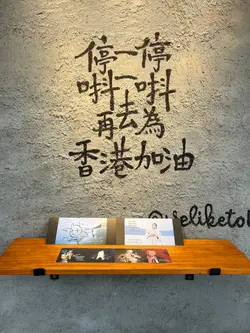 停一停
唞一唞
再去為
香港加油
@weliketo